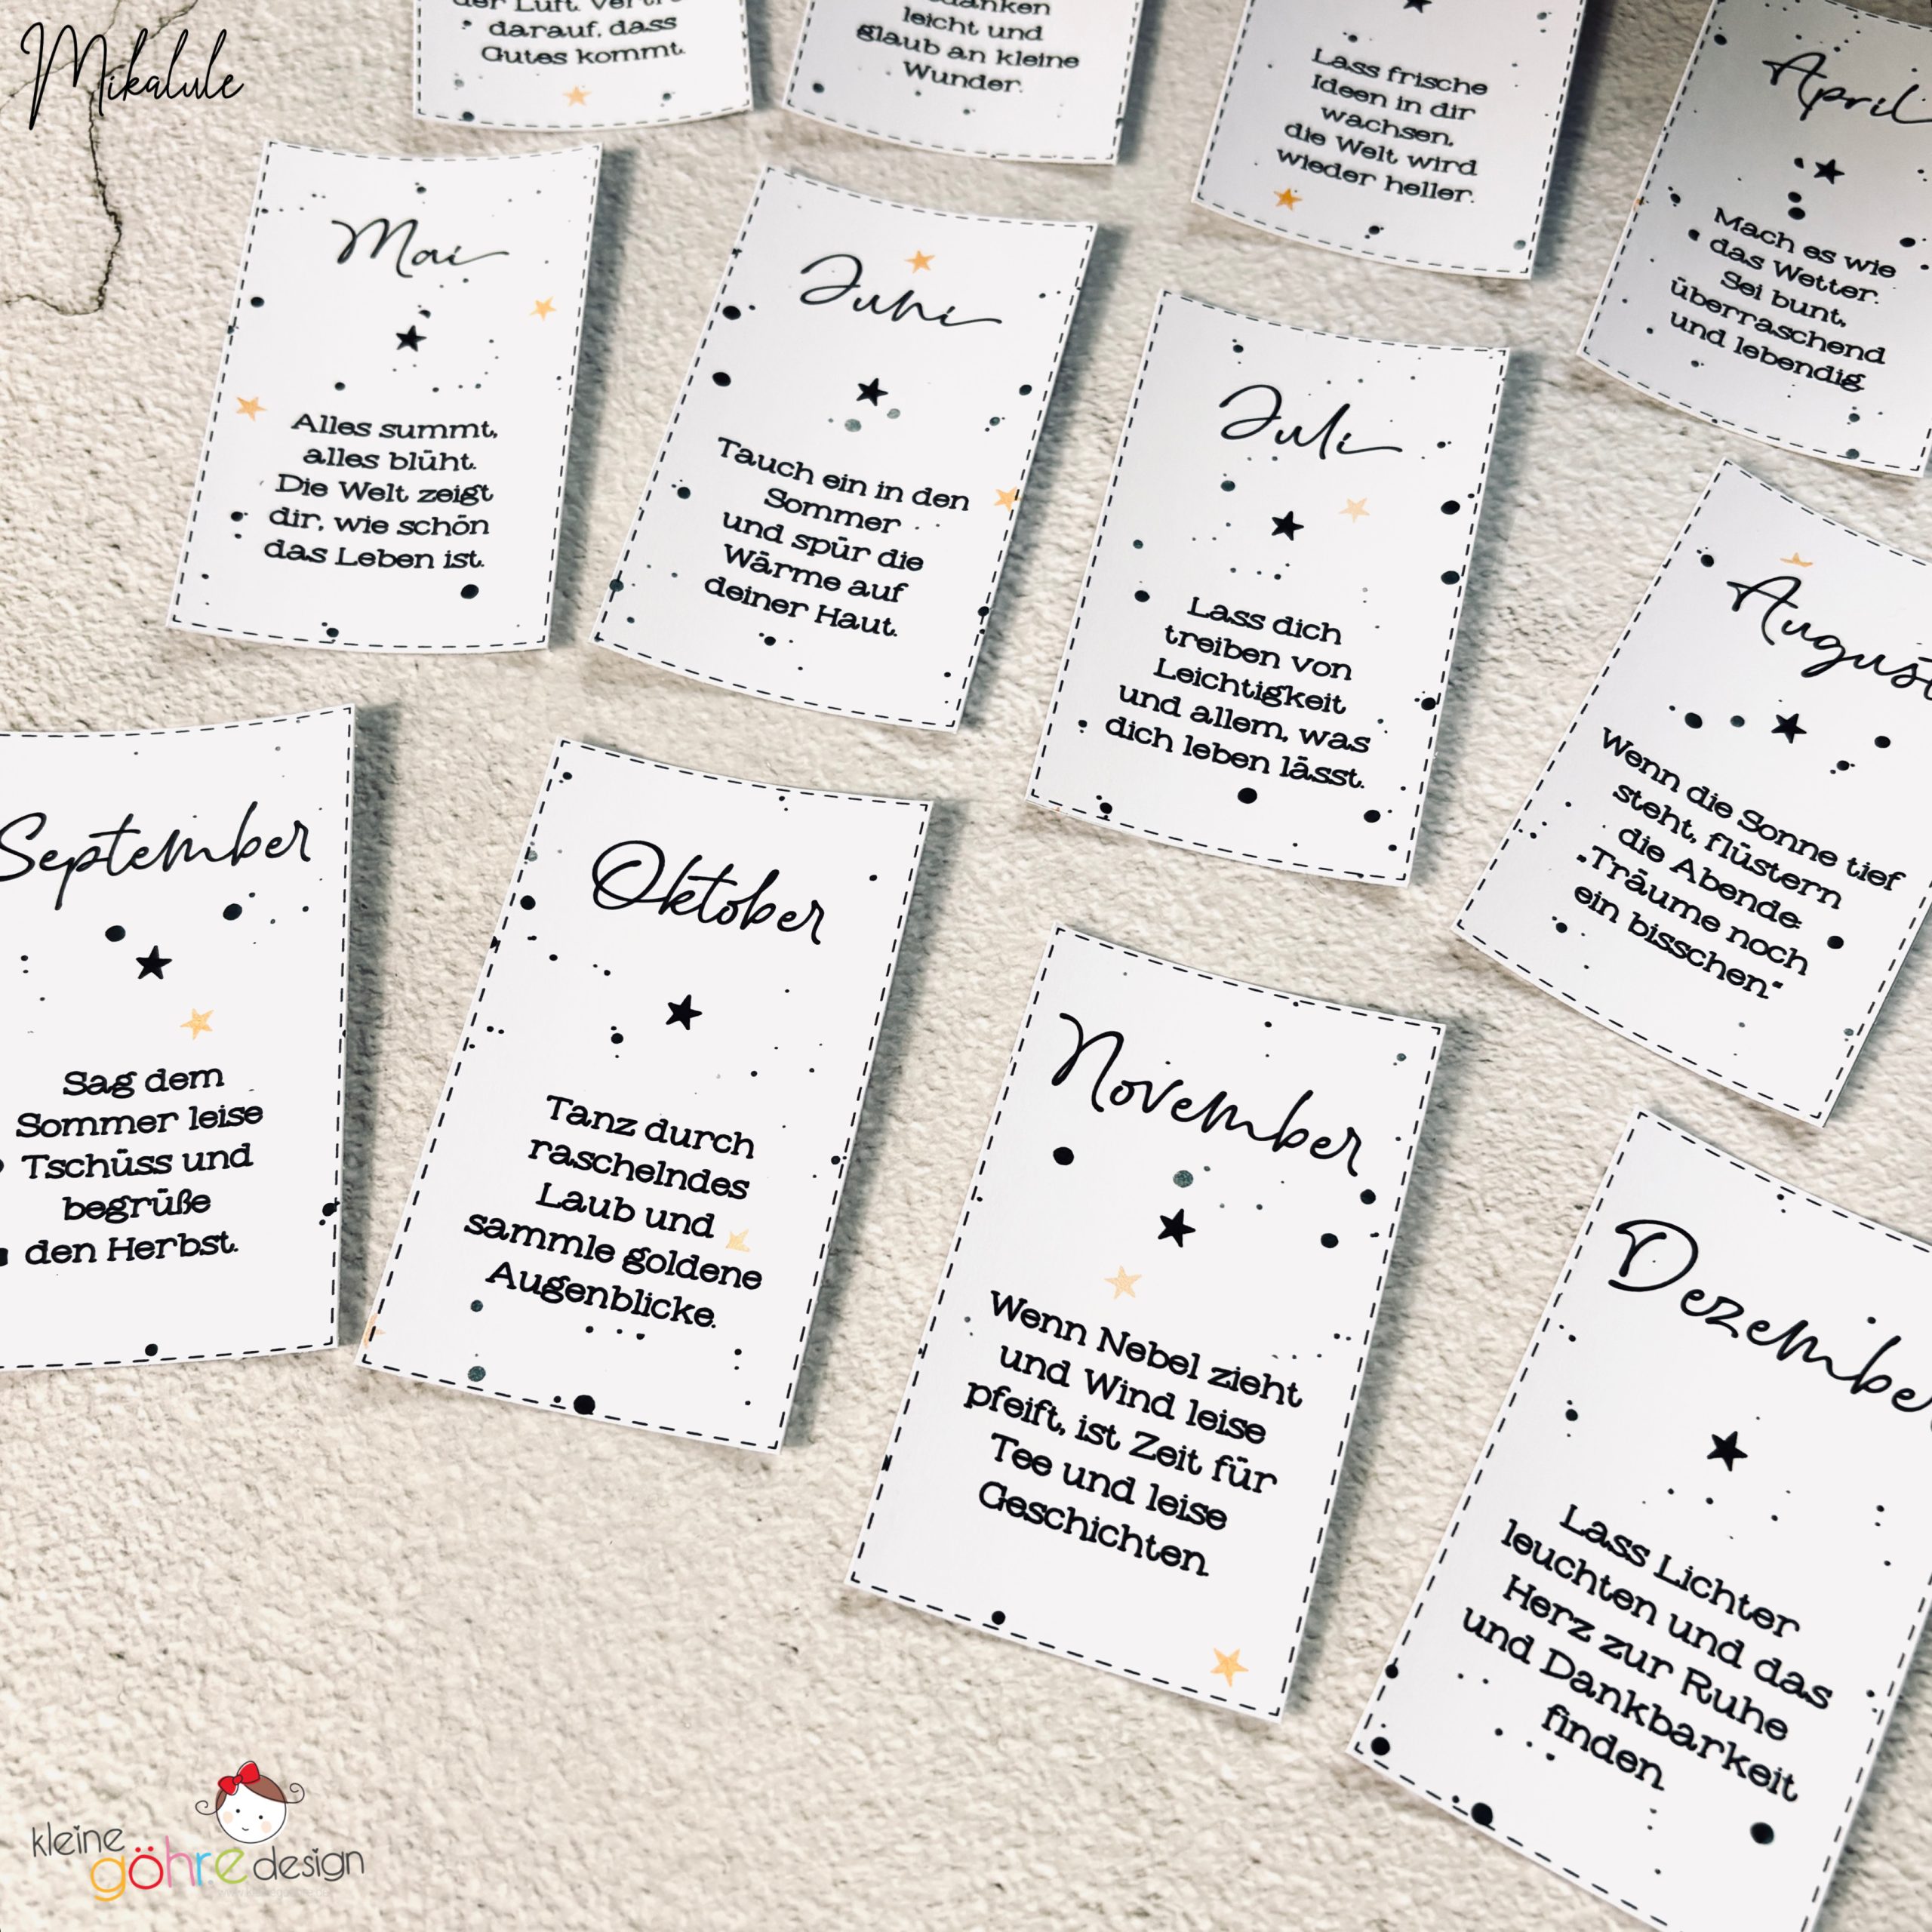 Mikalule
der Luft. Vertr
darauf, dass
Gutes kommt.
danken
leicht und
glaub an kleine
Wunder.
Lass frische
Ideen in dir
wachsen,
die Welt wird
wieder heller.
April
Mach es wie
das Wetter:
Sei bunt,
überraschend
und lebendig.
Mai
Alles summt,
alles blüht.
Die Welt zeigt
dir, wie schön
das Leben ist.
Juni
Tauch ein in den
Sommer
und spür die
Wärme auf
deiner Haut.
Juli
Lass dich
treiben von
Leichtigkeit
und allem, was
dich leben lässt.
August
Wenn die Sonne tief
steht, flüstern
die Abende:
„Träume noch
ein bisschen.“
September
Sag dem
Sommer leise
Tschüss und
begrüße
den Herbst.
Oktober
Tanz durch
raschelndes
Laub und
sammle goldene
Augenblicke.
November
Wenn Nebel zieht
und Wind leise
pfeift, ist Zeit für
Tee und leise
Geschichten.
Dezember
Lass Lichter
leuchten und das
Herz zur Ruhe
und Dankbarkeit
finden.
kleine
göhre design